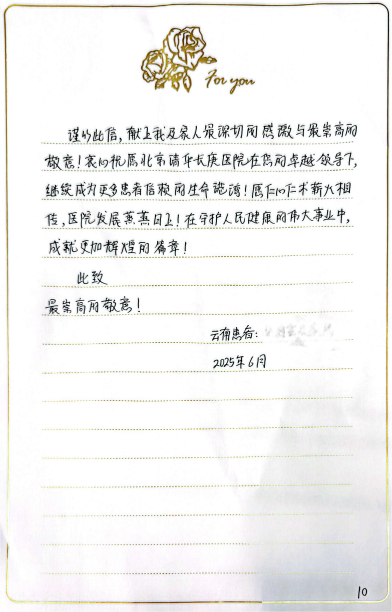 For you
谨以此信，献上我及家人最深切的感激与最崇高的
敬意！衷心祝愿北京清华长庚医院在您的卓越领导下，
继续成为更多患者信赖的生命诺港！愿仁心仁术薪火相
传，医院发展蒸蒸日上！在守护人民健康的伟大事业中，
成就更加辉煌的篇章！
此致
最崇高的敬意！
云南患者：
2025年6月
10